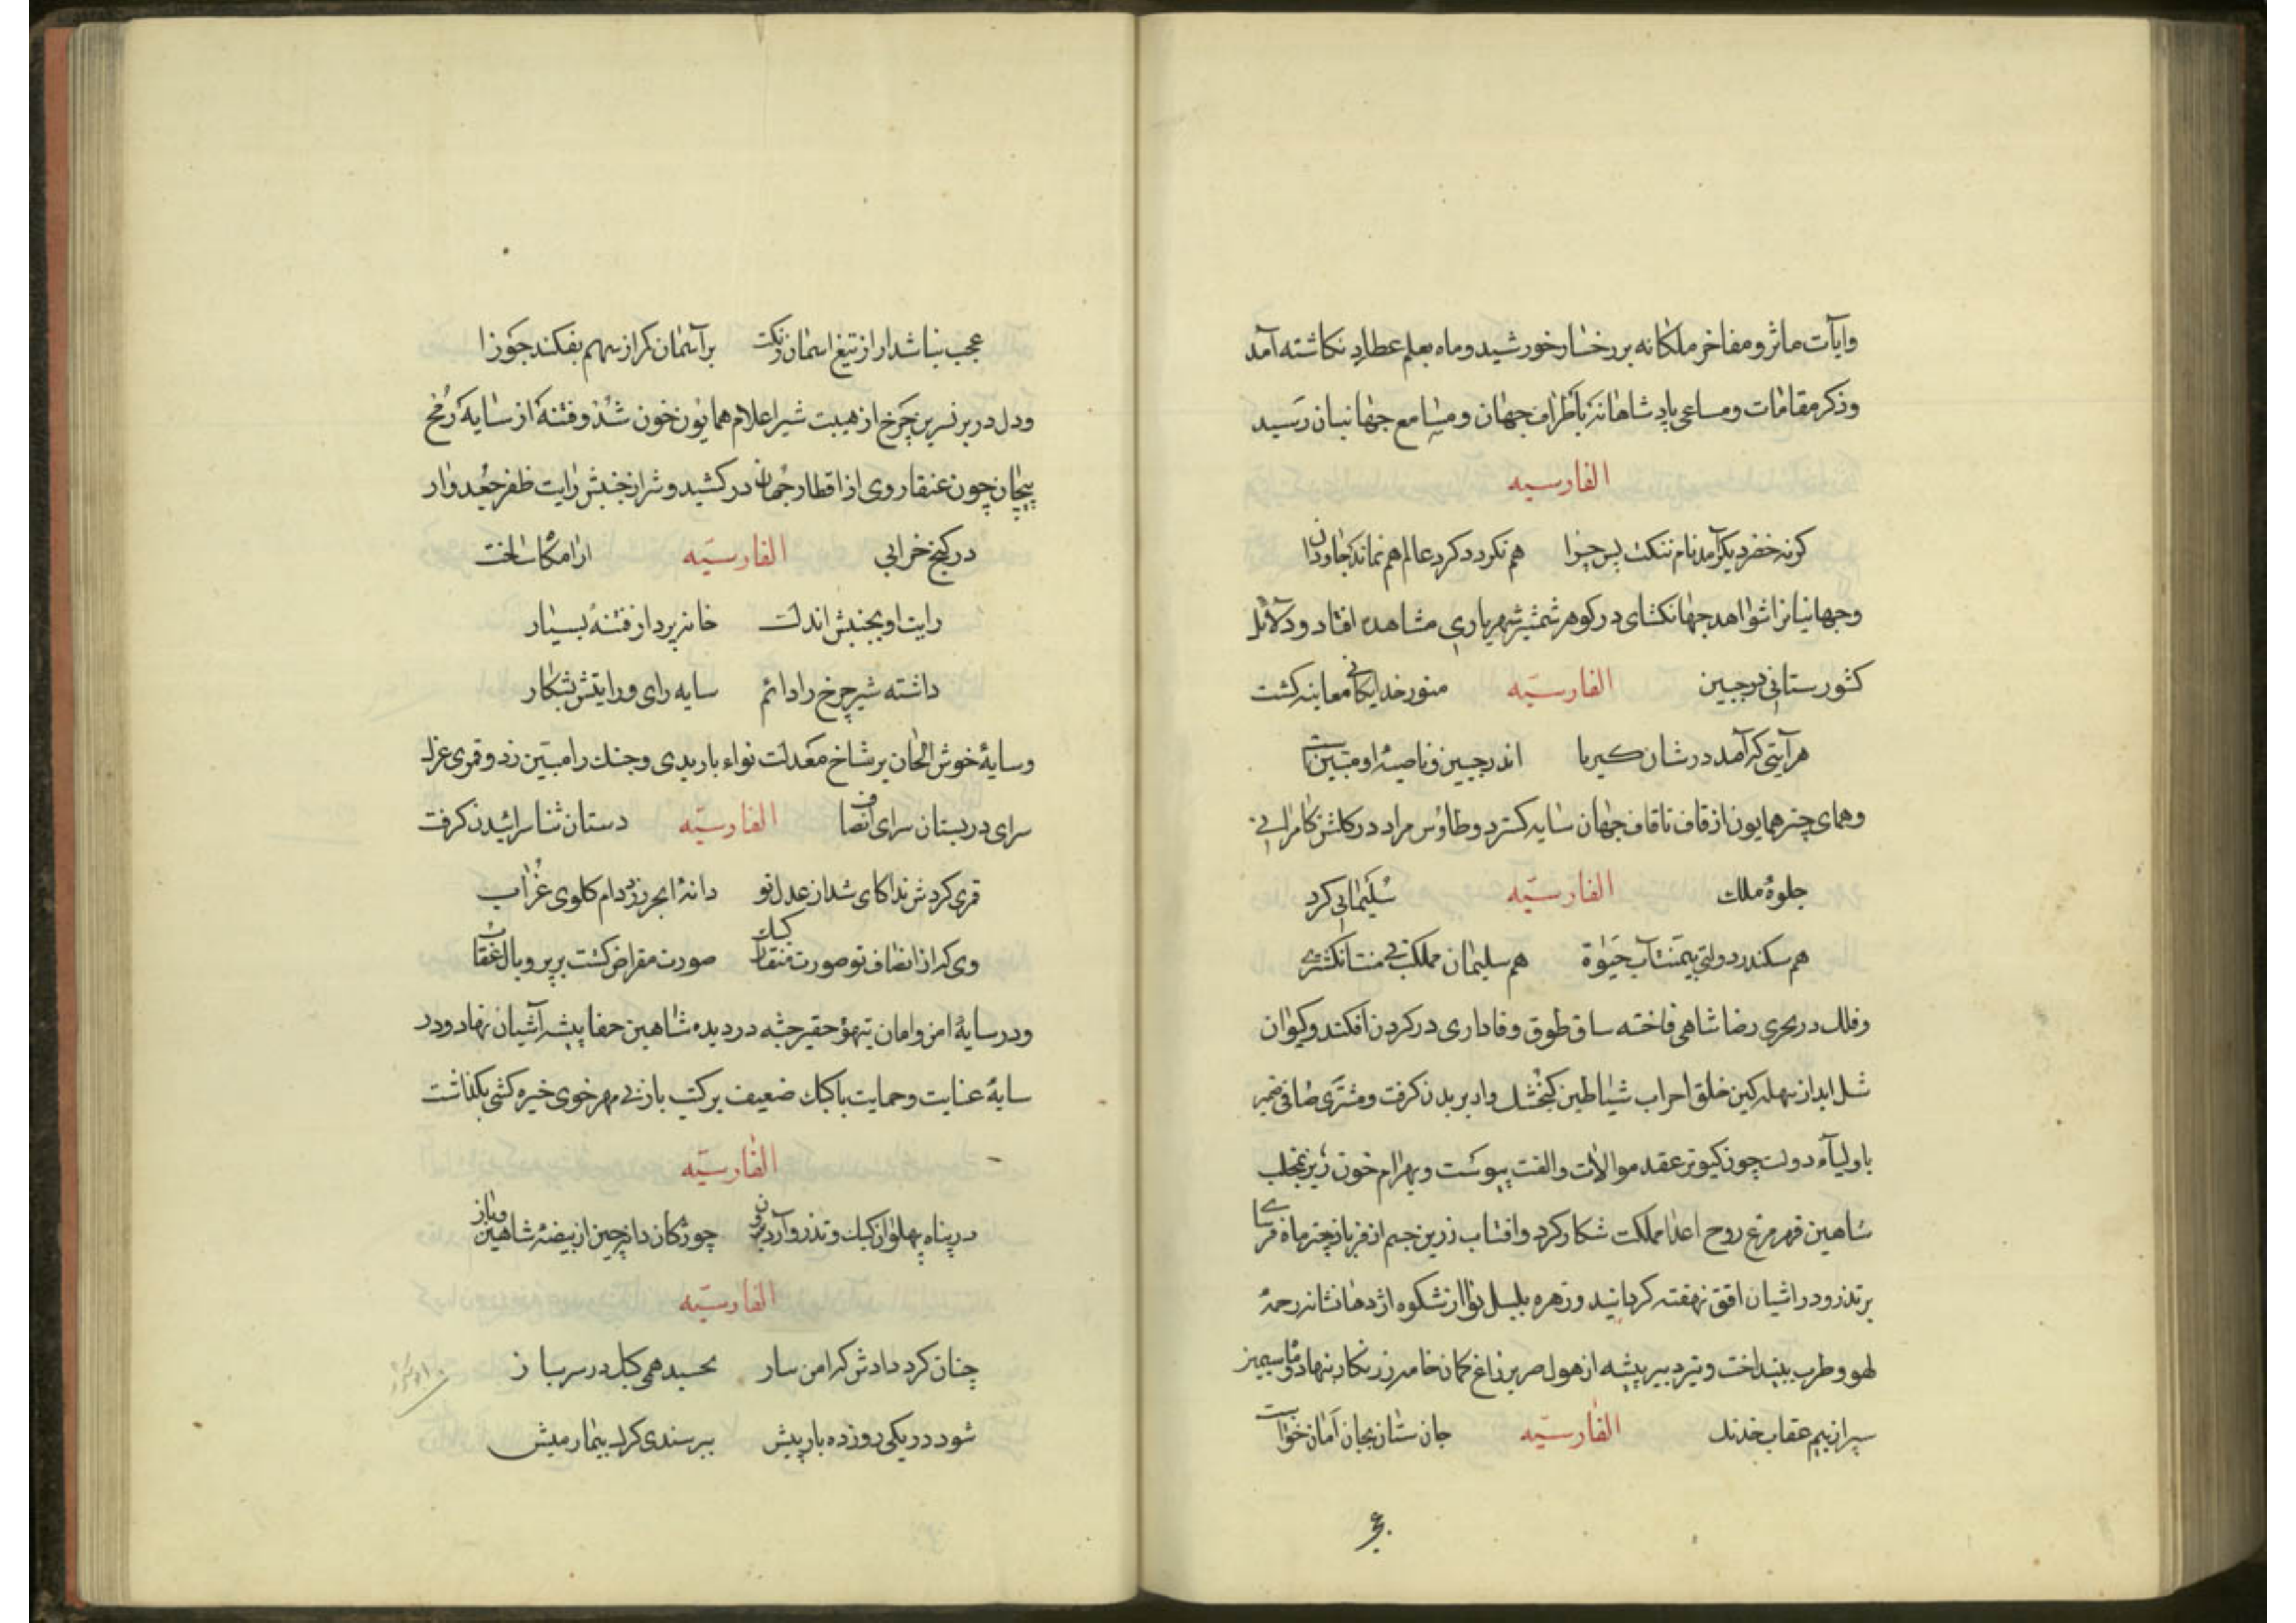 وایآت مآثر و مفاخر ملکانه بر رخسار خورشید و ماه بقلم عطارد نکاشته آمد
وذکر مقامات ومساعی پادشاهانه باطراف جهان و مسامع جهانیان رسید
الفارسیه
کونه خضر دیکر آمد نام ننکت پس چرا هم نکردد کرد عالم هم نماند جاودان
وجهانیانرا شواهد جهانکشای در کوهر شمشیر شهریاری مشاهده افتاد ودلائل
کشورستانی در جبین الفارسیّه منور خدایکانی معاینه کشت
هر آیتی که آمد در شان کبریا اندر جبین و ناصیهٔ او مبین است
وهمای چتر همایون از قاف تا قاف جهان سایه کسترد وطاوس مراد در کلشن کامرانی
جلوهٔ ملک الفارسیّه سلیمانی کرد
هم سکندر دولتی بیمنت آب حیوة هم سلیمان مملکت بی منت انکشتری
وفلک در بحری رضا شاهی فاخته ساق طوق وفاداری در کردن افکند وکیوان
باولیآء دولت چون کبوتر عقد موالات والفت پیوست وبهرام خون ریز بمخلب
شاهین قهر مرغ روح اعدا مملکت شکار کرد وافتاب زرین جسم از فر باز چتر ماه فرسای
بر تذرو در اشیان افق نهفته کردانید وزهره بلبل نوا از شکوه اژدها نشانه رحمهٔ
لهو وطرب بینداخت وتیر دبیر پیشه از هول صریر زاغ کمان خامه زرنکار بنهاد وماه سیمین
سپر از بیم عقاب خدنک الفارسیّه جان ستان بجان امان خواست
عجب نباشد ار از تیغ اسمان رنکت بر آسمان کر از سهم بفکند جوزا
ودل در بر نسرین چرخ از هیبت شیر اعلام همایون خون شد وفتنه از سایهٔ رمح
پیچان چون عنقا روی از اقطار جهان در کشید وشر از جنبش رایت ظفر جغد وار
در کنج خرابی الفارسیّه ارامکاه ساخت
رایت او بجنبش اندک خانه پرداز فتنهٔ بسیار
داشته شیر چرخ را دائم سایه رای ورایتش بشکار
وسایهٔ خوش الحان بر شاخ معدلت نواء باربدی وچنک رامتین زد وقمری غزل
سرای در بستان سرای انصاف الفارسیّه دستان ثنا سرائیدن کرفت
قمری کردش ندا کای شده از عدل تو دانهٔ انجر زرد دام کلوی غراب
وی که از انصاف تو صورت منقار کبک صورت مقراض کشت بر پر وبال عقاب
ودر سایهٔ امن وامان تیهو حقیر جثه در دیده شاهین جفا پیشه آشیان نهاد ودر
سایهٔ عنایت وحمایت با کبک ضعیف ترکیب باز بی مهر خوی خیره کشی بکذاشت
الفارسیّه
در پناه پهلوان کبک وتذرو آرد برون چوزکان دانه چین از بیضهٔ شاهین وباز
الفارسیّه
چنان کرد دادش که امن سار بخسبد همی کبک در سر باز
شود در یکی روز ده بار پیش بپرسندی کرک بیمار میش